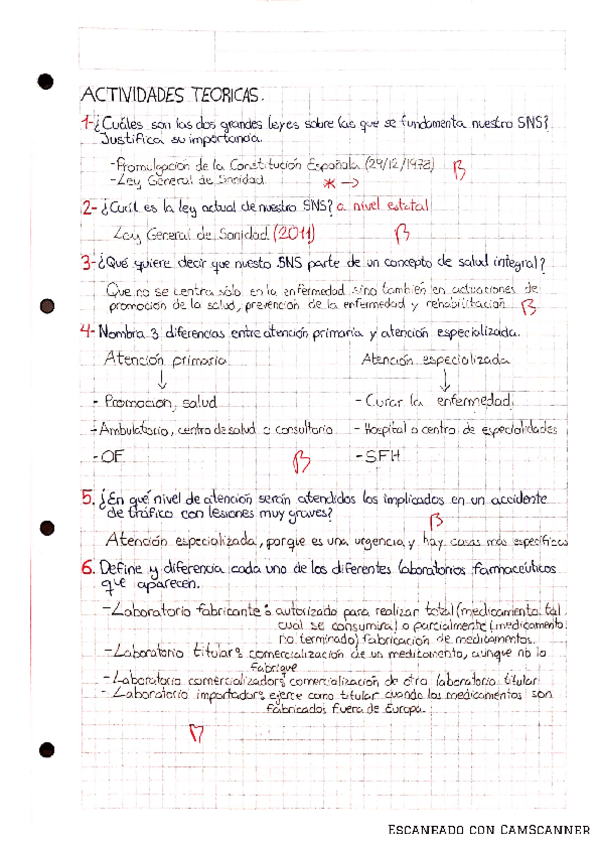 ACTIVIDADES TEORICAS.
1-¿Cuáles son las dos grandes leyes sobre las que se fundamenta nuestro SNS?
Justifica su importancia.
-Promulgación de la Constitución Española (29/12/1978) B
-Ley General de Sanidad. * →
2-¿Cuál es la ley actual de nuestro SNS? a nivel estatal
Ley General de Sanidad (2011) B
3-¿Qué quiere decir que nuesto SNS parte de un concepto de salud integral?
Que no se centra sólo en la enfermedad sino también en actuaciones de
promoción de la salud, prevención de la enfermedad y rehabilitación. B
4-Nombra 3 diferencias entre atención primaria y atención especializada.
Atención primaria Atención especializada
↓ ↓
- Promoción, salud - Curar la enfermedad.
-Ambulatorio, centro de salud o consultorio - Hospital o centro de especialidades
-OF B -SFH
5. ¿En qué nivel de atención serán atendidos los implicados en un accidente
de tráfico con lesiones muy graves? B
Atención especializada, porque es una urgencia y hay cosas más específicas
6. Define y diferencia cada uno de los diferentes laboratorios farmacéuticos
que aparecen.
-Laboratorio fabricante: autorizado para realizar total (medicamento tal
cual se consumirá) o parcialmente (medicamento
no terminado) fabricación de medicamentos.
-Laboratorio titular: comercialización de un medicamento, aunque no lo
fabrique
-Laboratorio comercializador: comercialización de otro laboratorio titular
- Laboratorio importador: ejerce como titular cuando los medicamentos son
fabricados fuera de Europa.
B
ESCANEADO CON CAMSCANNER